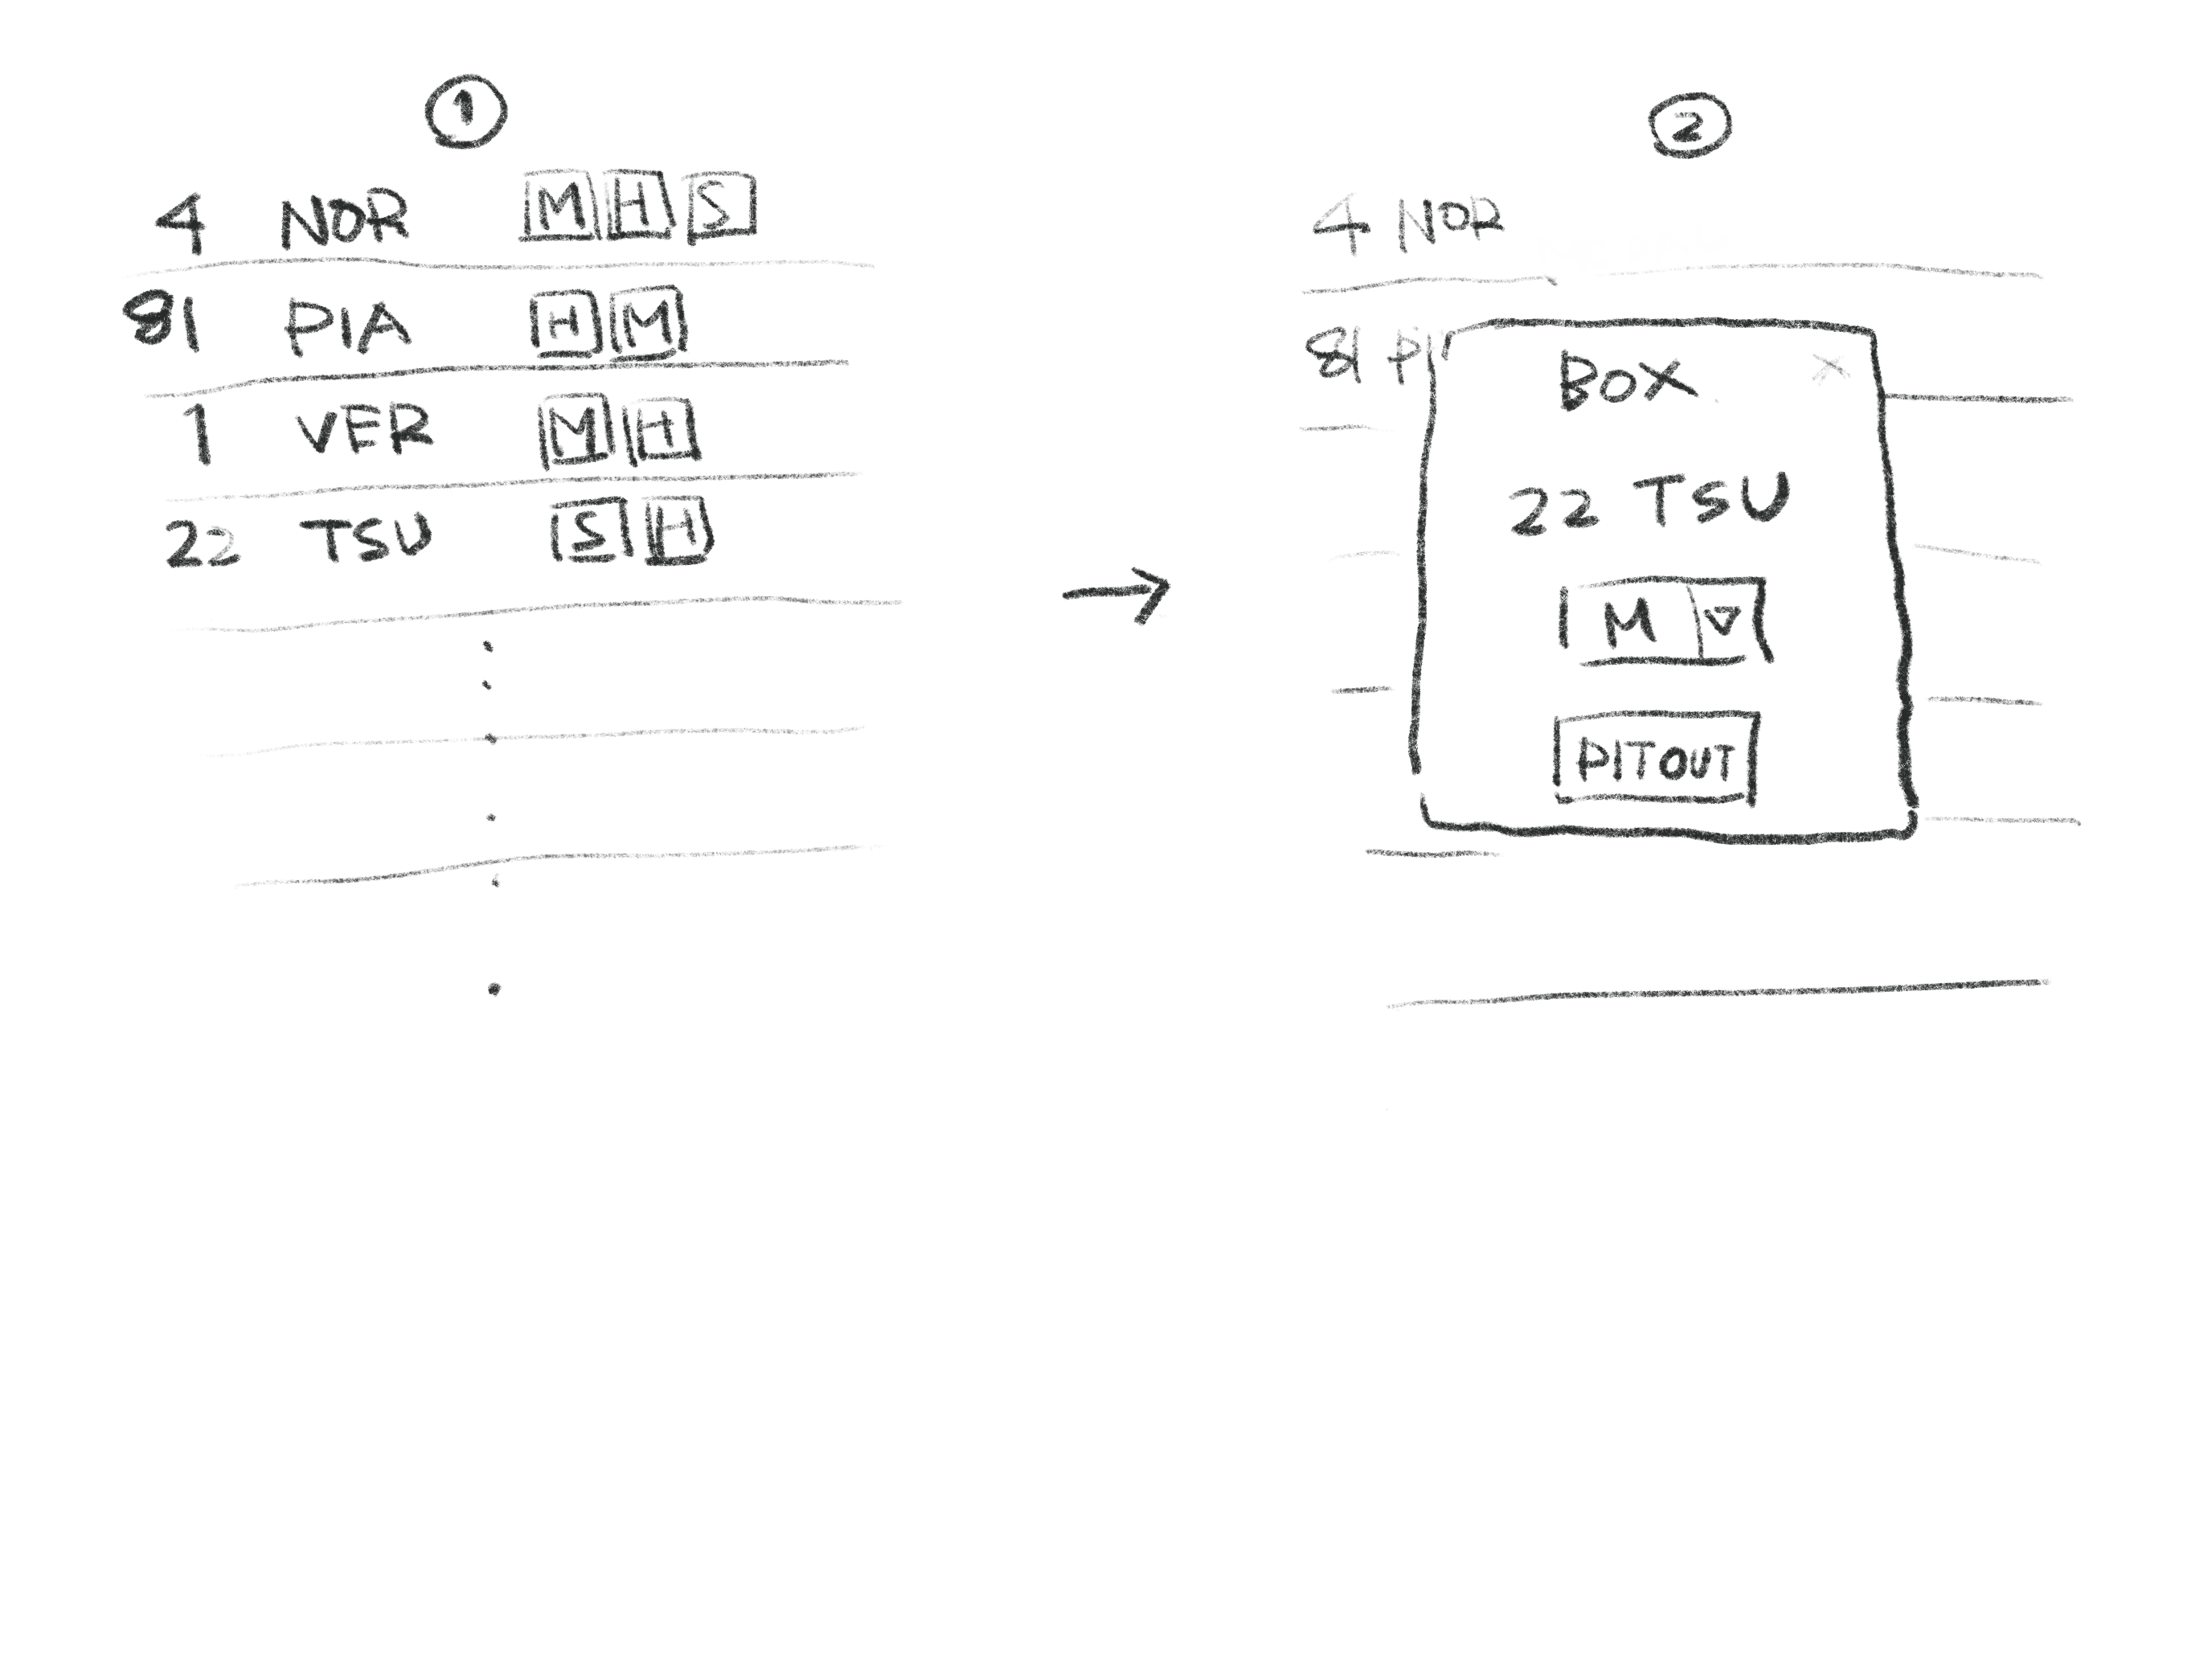 1
4 NOR M H S
81 PIA H M
1 VER M H
22 TSU S H
2
4 NOR
81 PI
BOX
22 TSU
M
PITOUT